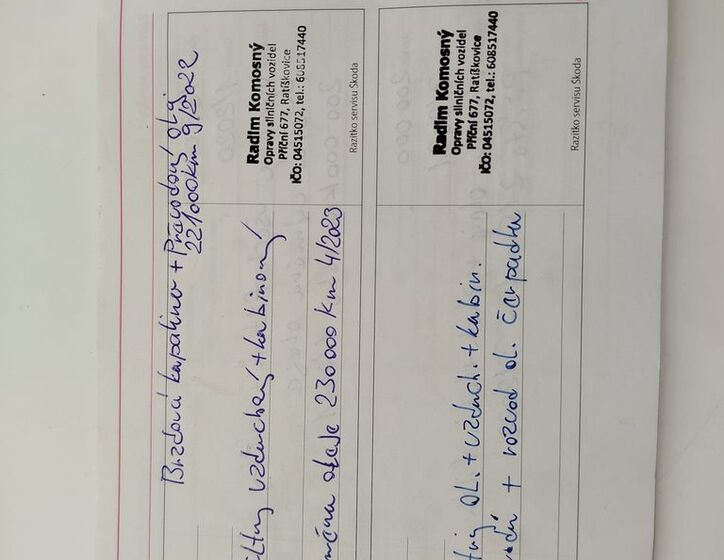 Brzdová kapalina + Převodový olej
221000km 9/2022
vzduchový + kabinový
oleje 230 000 km 4/2023
Radim Komosný
Opravy silničních vozidel
Příční 677, Ratíškovice
IČO: 04515072, tel.: 608517440
Razítko servisu Škoda
OL. + vzduch. + kabin.
+ rozvod ol. čerpadla
Radim Komosný
Opravy silničních vozidel
Příční 677, Ratíškovice
IČO: 04515072, tel.: 608517440
Razítko servisu Škoda